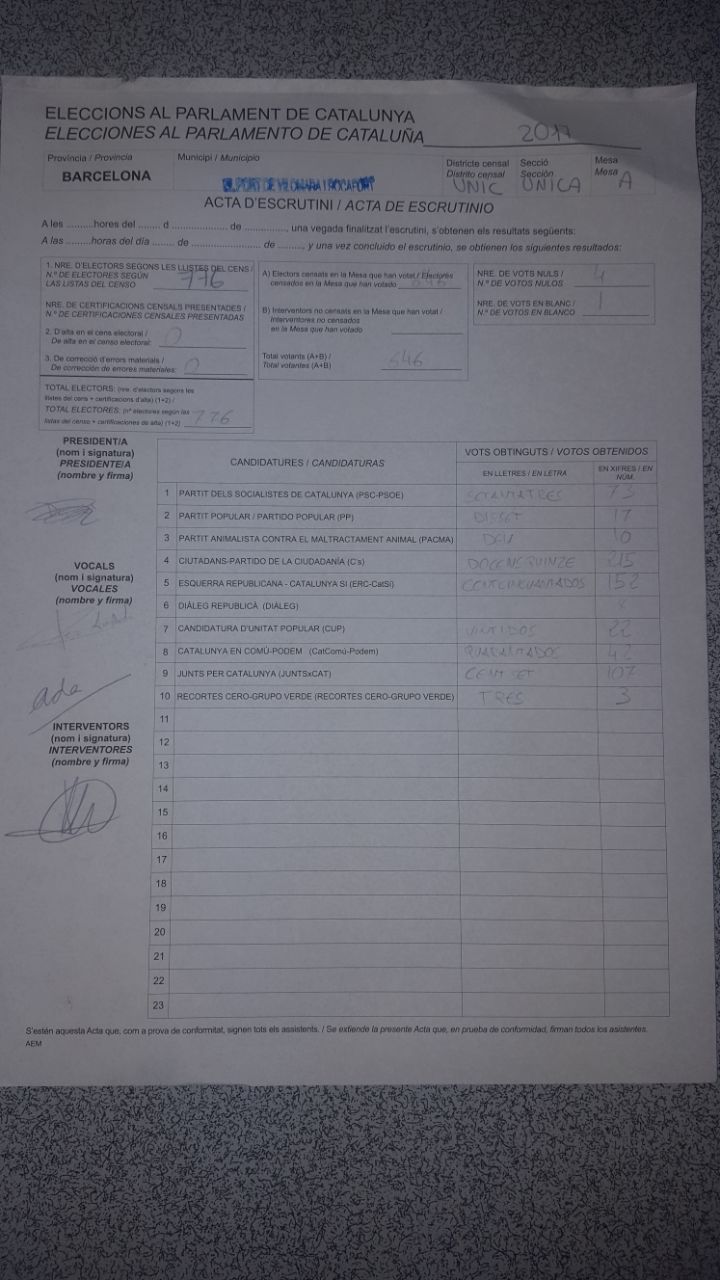 ELECCIONS AL PARLAMENT DE CATALUNYA
ELECCIONES AL PARLAMENTO DE CATALUÑA 2017
Província / Provincia
BARCELONA
Municipi / Municipio
EL PONT DE VILOMARA I ROCAFORT
Districte censal
Distrito censal
UNIC
Secció
Sección
ÚNICA
Mesa
Mesa
A
ACTA D'ESCRUTINI / ACTA DE ESCRUTINIO
A les .........hores del ....... d .................... de .............., una vegada finalitzat l'escrutini, s'obtenen els resultats següents:
A las .........horas del día ....... de ....................... de ........, y una vez concluido el escrutinio, se obtienen los siguientes resultados:
1. NRE. D'ELECTORS SEGONS LES LLISTES DEL CENS /
N.º DE ELECTORES SEGÚN
LAS LISTAS DEL CENSO 776
NRE. DE CERTIFICACIONS CENSALS PRESENTADES /
N.º DE CERTIFICACIONES CENSALES PRESENTADAS
2. D'alta en el cens electoral /
De alta en el censo electoral: 0
3. De correcció d'errors materials /
De corrección de errores materiales: 0
TOTAL ELECTORS: (nre. d'electors segons les
llistes del cens + certificacions d'alta) (1+2) /
TOTAL ELECTORES: (nº electores según las
listas del censo + certificaciones de alta) (1+2) 776
A) Electors censats en la Mesa que han votat / Electores
censados en la Mesa que han votado 646
B) Interventors no censats en la Mesa que han votat /
Interventores no censados
en la Mesa que han votado
Total votants (A+B) /
Total votantes (A+B) 646
NRE. DE VOTS NULS /
N.º DE VOTOS NULOS 4
NRE. DE VOTS EN BLANC /
N.º DE VOTOS EN BLANCO 1
PRESIDENT/A
(nom i signatura)
PRESIDENTE/A
(nombre y firma)
VOCALS
(nom i signatura)
VOCALES
(nombre y firma)
Ada
INTERVENTORS
(nom i signatura)
INTERVENTORES
(nombre y firma)
CANDIDATURES / CANDIDATURAS
VOTS OBTINGUTS / VOTOS OBTENIDOS
EN LLETRES / EN LETRA
EN XIFRES / EN NÚM.
1 PARTIT DELS SOCIALISTES DE CATALUNYA (PSC-PSOE) SETANTATRES 73
2 PARTIT POPULAR / PARTIDO POPULAR (PP) DISSET 17
3 PARTIT ANIMALISTA CONTRA EL MALTRACTAMENT ANIMAL (PACMA) DEU 10
4 CIUTADANS-PARTIDO DE LA CIUDADANÍA (C's) DOCENSQUINZE 215
5 ESQUERRA REPUBLICANA - CATALUNYA SÍ (ERC-CatSí) CENTCINQUANTADOS 152
6 DIÀLEG REPUBLICÀ (DIÀLEG)
7 CANDIDATURA D'UNITAT POPULAR (CUP) VINTIDOS 22
8 CATALUNYA EN COMÚ-PODEM (CatComú-Podem) QUARANTADOS 42
9 JUNTS PER CATALUNYA (JUNTSxCAT) CENT SET 107
10 RECORTES CERO-GRUPO VERDE (RECORTES CERO-GRUPO VERDE) TRES 3
11
12
13
14
15
16
17
18
19
20
21
22
23
S'estén aquesta Acta que, com a prova de conformitat, signen tots els assistents. / Se extiende la presente Acta que, en prueba de conformidad, firman todos los asistentes.
AEM